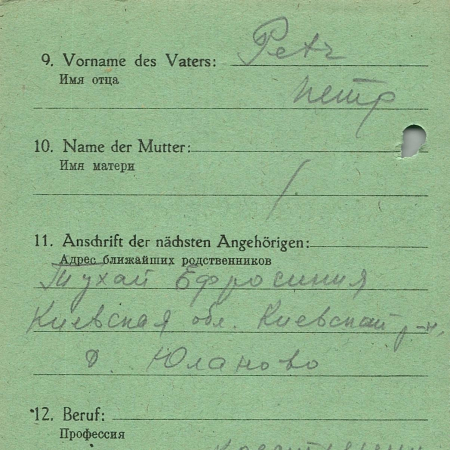 9. Vorname des Vaters: Petr
Имя отца
Петр
10. Name der Mutter:
Имя матери
/.
11. Anschrift der nächsten Angehörigen:
Адрес ближайших родственников
Тухай Ефросиния
Киевская обл. Киевский р-н,
д. Юланово
12. Beruf:
Профессия